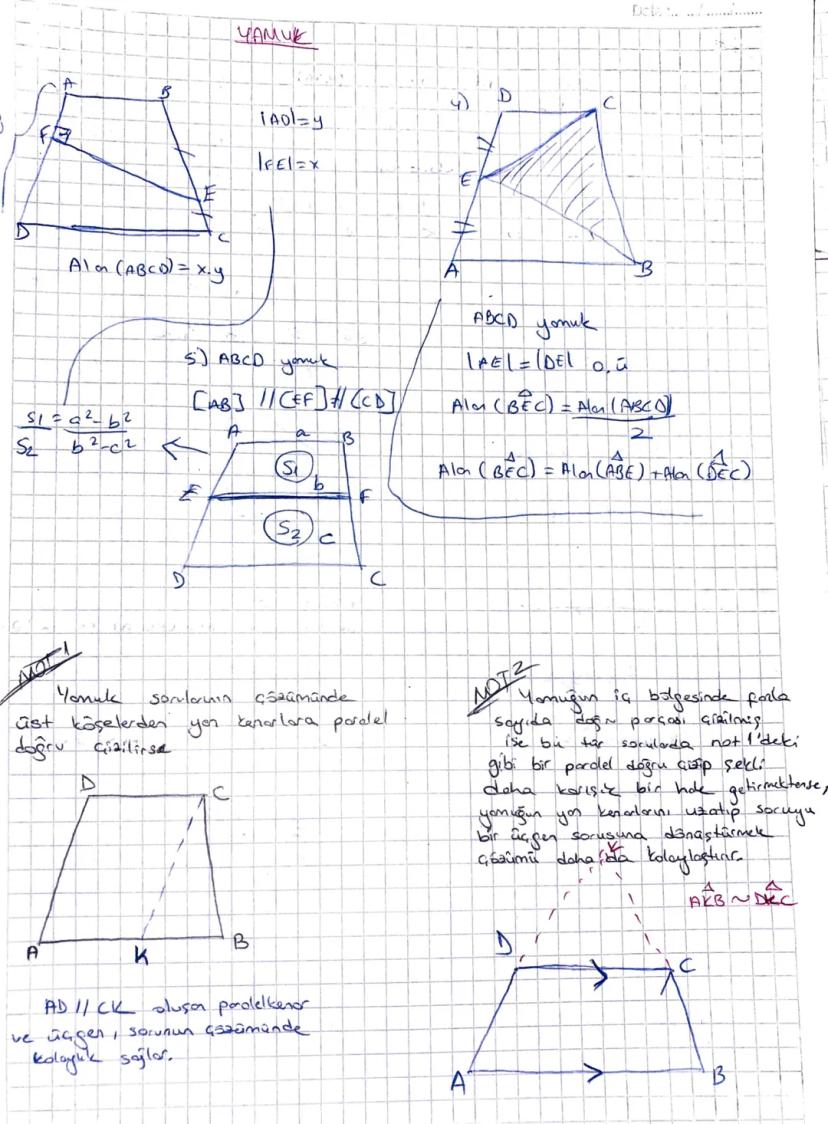 YAMUK
A
B
F
E
D
C
|AD|=y
|FE|=x
Alan (ABCD) = x.y
4)
D
C
E
A
B
ABCD yamuk
|AE|=|DE| o,ü
Alan (BEC) = Alan (ABCD)
2
Alan (BEC) = Alan(ABE) + Alan (DEC)
5) ABCD yamuk
[AB] // [EF] // [CD]
S1 = a²-b²
S2 b²-c²
A
a
B
S1
b
E
F
S2
c
D
C
NOT 1
Yamuk sorularının çözümünde
üst köşelerden yan kenarlara paralel
doğru çizilirse
D
C
A
K
B
AD // CK oluşan paralelkenar
ve üçgen, sorunun çözümünde
kolaylık sağlar.
NOT 2
Yamuğun iç bölgesinde fazla
sayıda doğru parçası çizilmiş
ise bu tür sorularda not 1'deki
gibi bir paralel doğru çizip şekli
daha karışık bir hale getirmektense,
yamuğun yan kenarlarını uzatıp soruyu
bir üçgen sorusuna dönüştürmek
çözümü daha da kolaylaştırır.
K
AKB ~ DKC
D
C
A
B